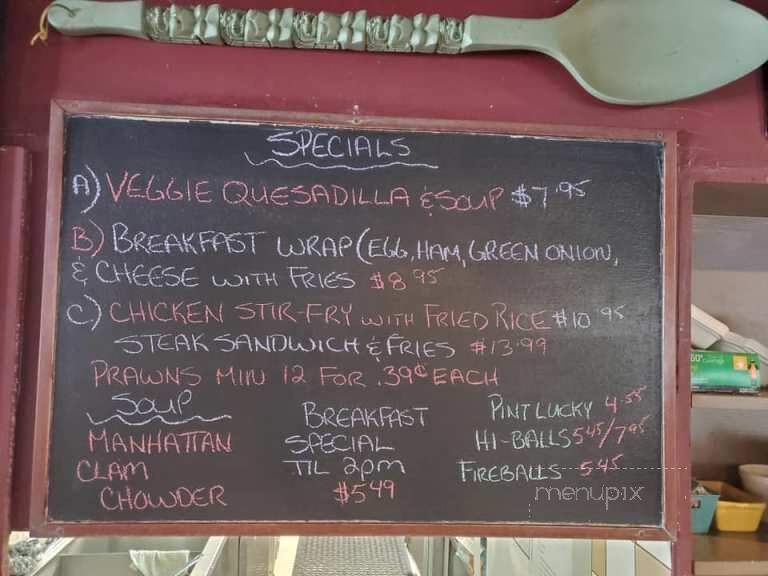 SPECIALS
A) VEGGIE QUESADILLA & SOUP $7.95
B) BREAKFAST WRAP (EGG, HAM, GREEN ONION,
& CHEESE WITH FRIES $8 95
C) CHICKEN STIR-FRY WITH FRIED RICE $10 95
STEAK SANDWICH & FRIES $13.99
PRAWNS MIN 12 FOR .39¢ EACH
SOUP
MANHATTAN
CLAM
CHOWDER
BREAKFAST
SPECIAL
TIL 2PM
$5.49
PINT LUCKY 4.55
HI-BALLS 5.45/7.95
FIREBALLS 5.45
menupix